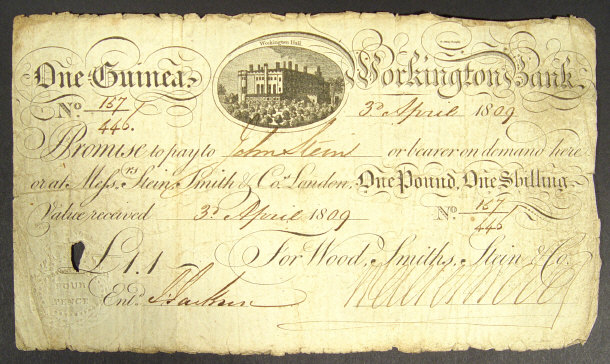 Workington Hall
One Guinea. Workington Bank.
No. 157/446. 3d April 1809
Promise to pay to John Stein or bearer on demand here
or at Messrs Stein, Smith & Co. London, One Pound, One Shilling
Value received 3d April 1809 No. 157/446
£1.1 For Wood, Smiths, Stein & Co.
Entd.
FOUR
PENCE